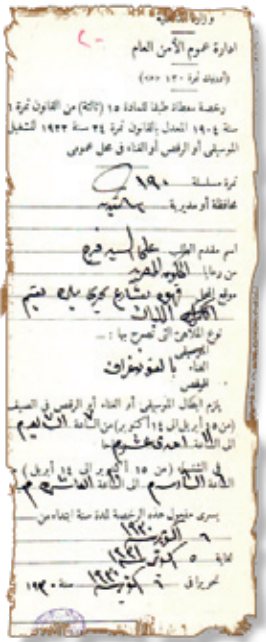 وزارة الداخلية
ادارة عموم الأمن العام
(أمنيات نمرة ١٣٠ «»)
رخصة معطاة طبقا للمادة ١٥ (ثالثة) من القانون نمرة ١
سنة ١٩٠٤ المعدل بالقانون نمرة ٢٤ سنة ١٩٢٣ لتشغيل
الموسيقى أو الرقص أو الغناء فى محل عمومى
نمرة مسلسلة ١٩٠
محافظة أو مديرية
اسم مقدم الطلب على السيد فرج
من رعايا الحكومة المصرية
موقع المحل قهوة بشارع كوبرى
اللبان
نوع الملاهى التى تصرح بها : ـــ
الموسيقى
الغناء بالفونوغراف
الرقص
يلزم ابطال الموسيقى أو الغناء أو الرقص فى الصيف
(من ١٥ أبريل الى ١٤ أكتوبر) من الساعة السابعة م
الى الساعة احدى عشر م
فى الشتاء (من ١٥ أكتوبر الى ١٤ أبريل)
الساعة السادسة م الى الساعة العاشرة م
يسرى مفعول هذه الرخصة لمدة سنة ابتداء من
٦ أكتوبر ١٩٣٠
لغاية ٥ أكتوبر ١٩٣١
تحريرا فى ٦ أكتوبر سنة ١٩٣٠